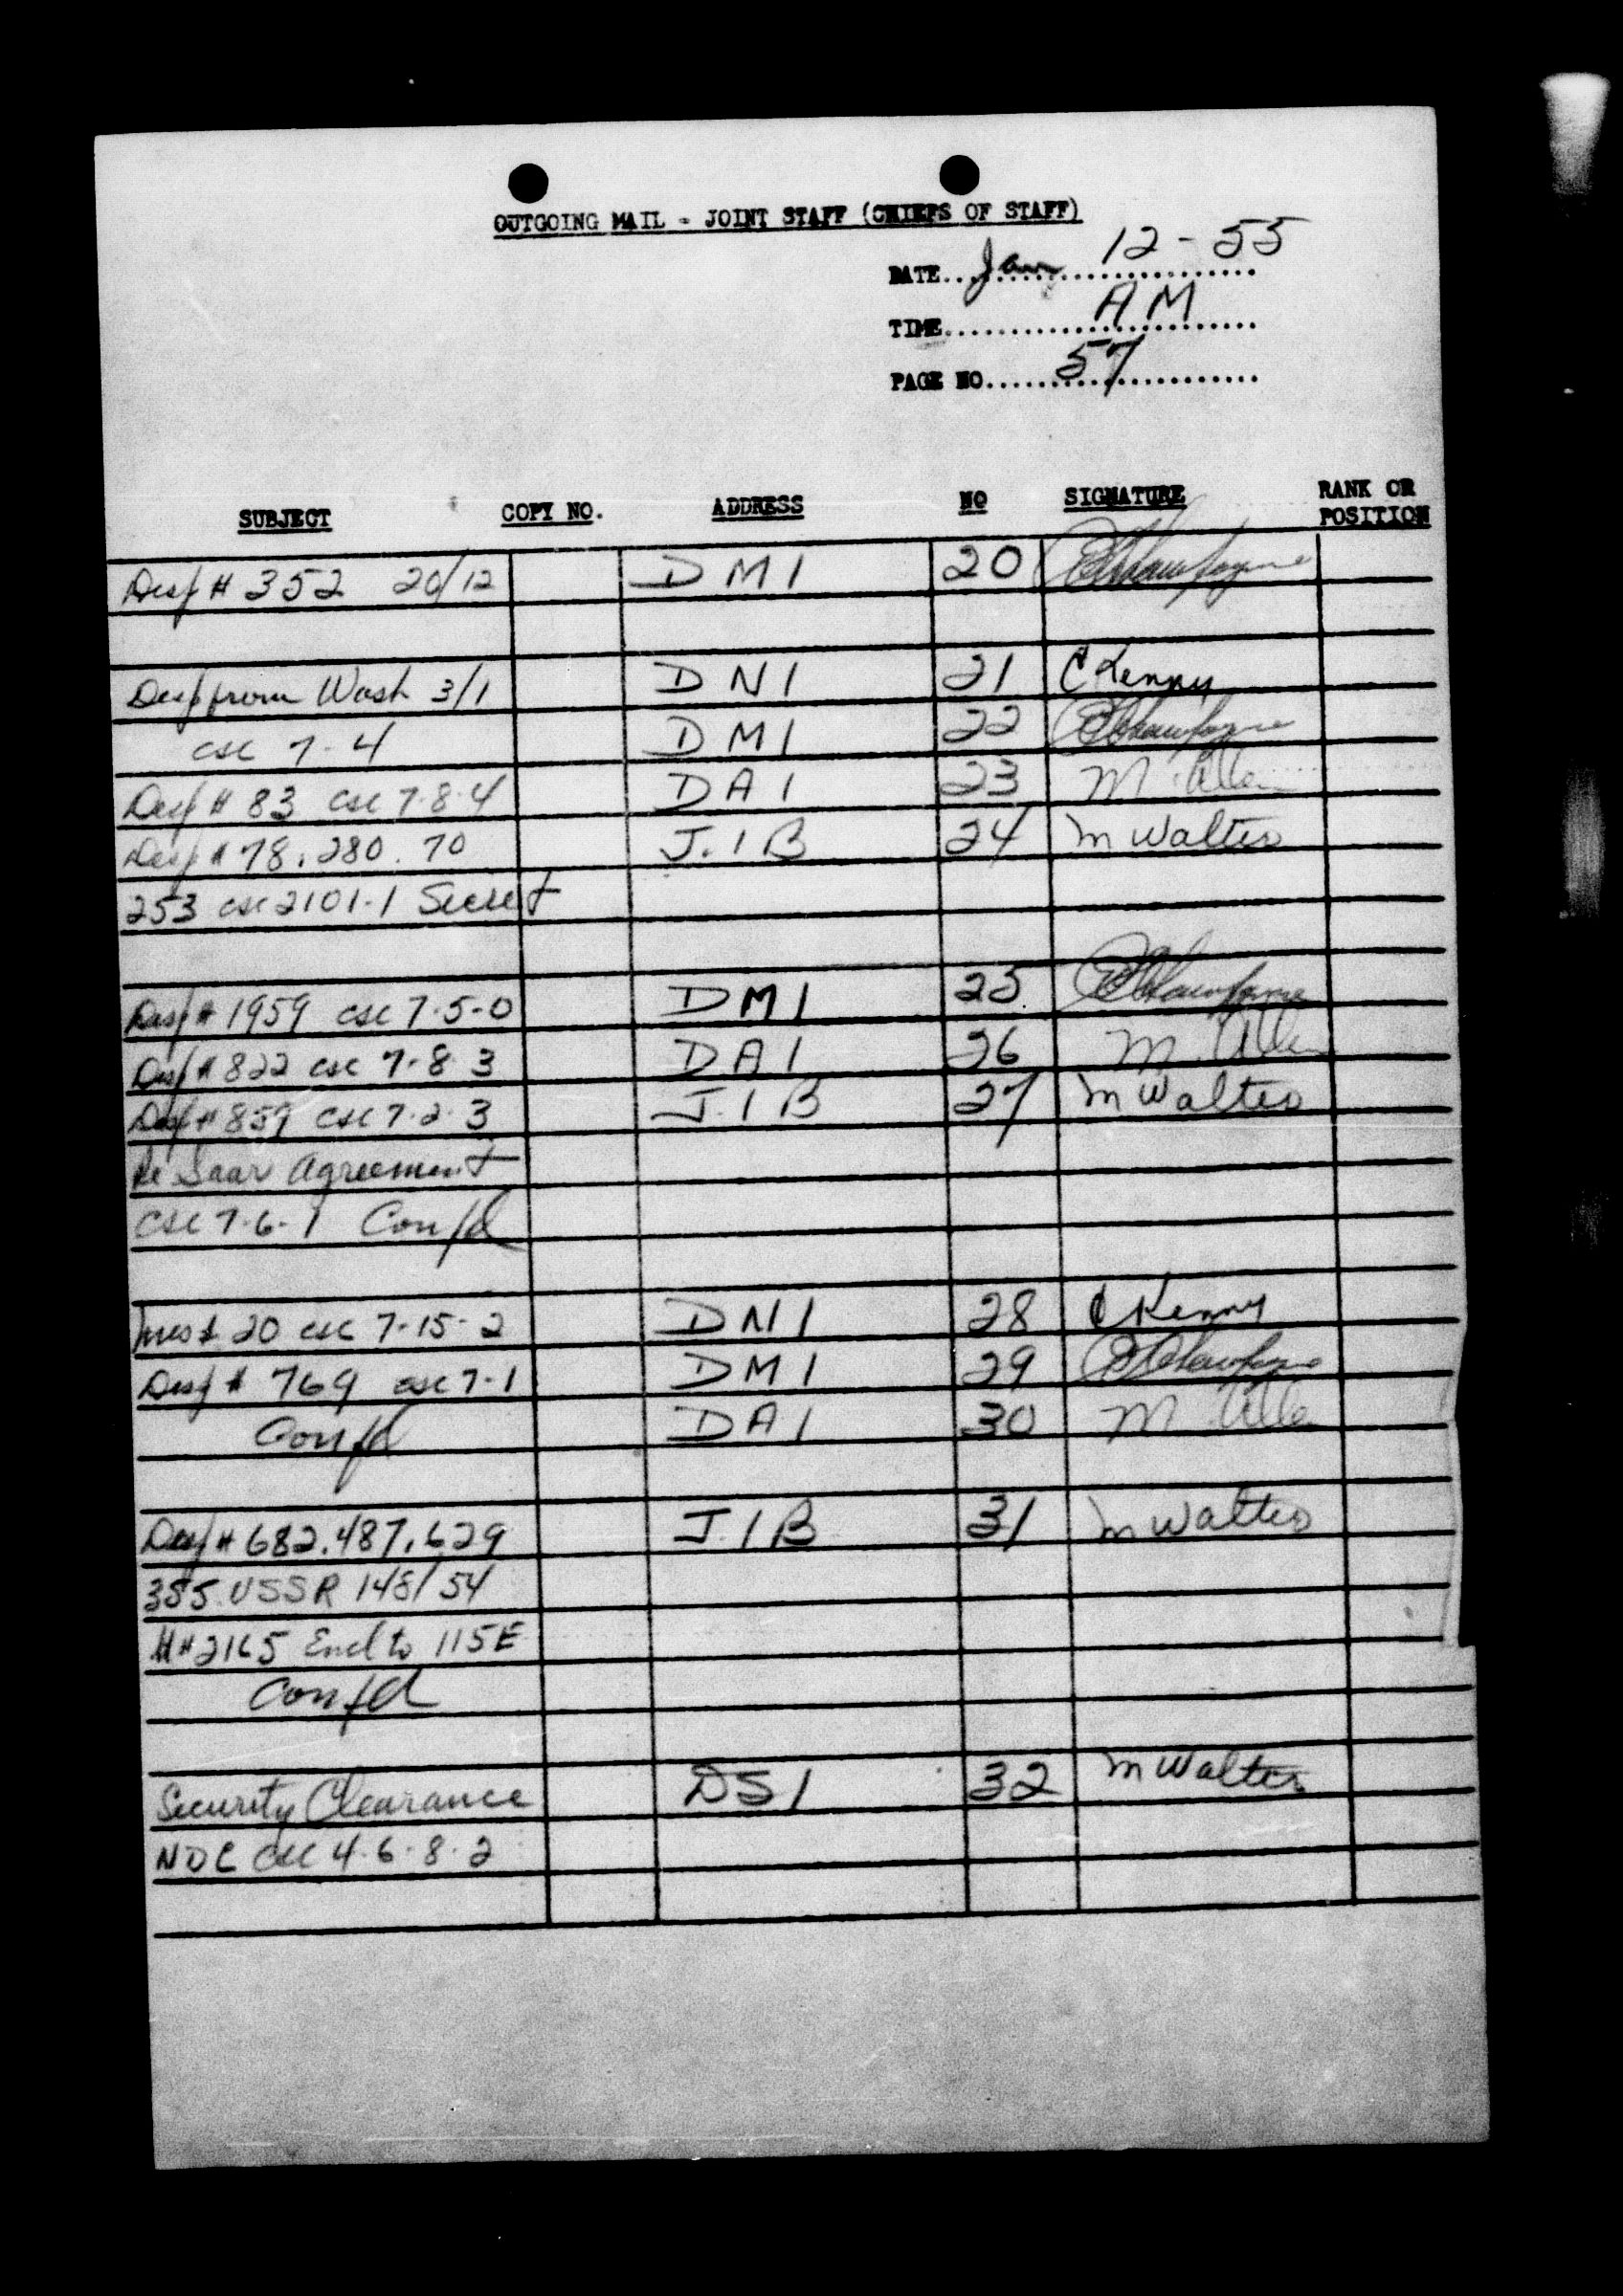 OUTGOING MAIL - JOINT STAFF (CHIEFS OF STAFF)
DATE Jan 12 - 55
TIME AM
PAGE NO 57
SUBJECT COPY NO. ADDRESS NO SIGNATURE RANK OR POSITION
Desp # 352 20/12 DMI 20
Desp from Wash 3/1 DNI 21 C Kenny
csc 7-4 DMI 22
Desp # 83 csc 7-8-4 DAI 23 M. Allen
Desp # 78, 280, 70 J.IB 24 M Walter
253 csc 2101-1 Secret
Desp # 1959 csc 7-5-0 DMI 25
Desp # 822 csc 7-8-3 DAI 26 M. Allen
Desp # 859 csc 7-2-3 J.IB 27 M Walter
Re Saar Agreement
csc 7-6-1 Confd
20 csc 7-15-2 DNI 28 C Kenny
Desp # 769 csc 7-1 DMI 29
Confd DAI 30 M. Allen
Desp # 682, 487, 629 J.IB 31 M Walter
355 USSR 148/54
2165 Encl to 115E
Confd
Security Clearance DSI 32 M Walter
NDC csc 4-6-8-2